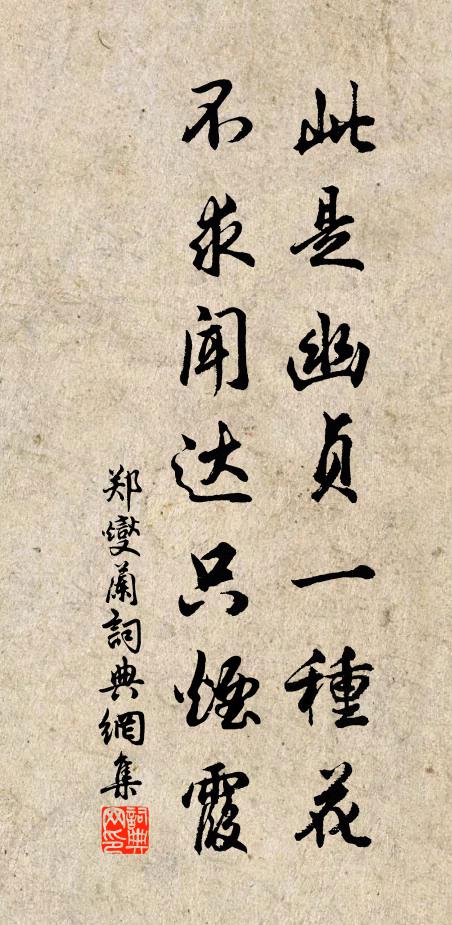 此是幽貞一種花
不求闻达只煙霞
郑燮蘭詞典網集
詞典网印